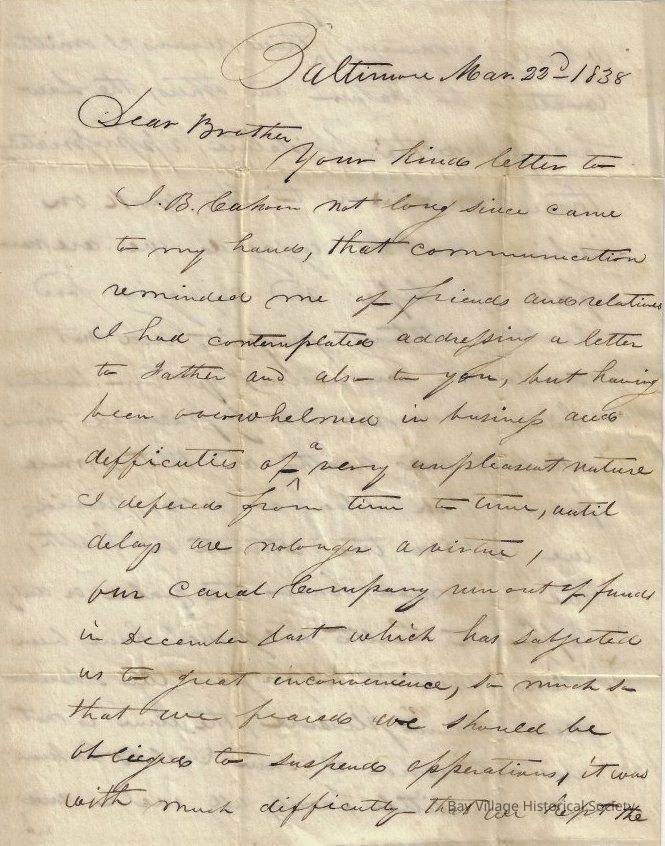 Baltimore Mar. 22d 1838
Dear Brother
Your kind letter to
I. B. Cahoon not long since came
to my hands, that communication
reminded me of friends and relatives
I had contemplated addressing a letter
to Father and also to you, but having
been overwhelmed in business and
difficuties of a very unpleasent nature
I defered from time to time, until
delays are nolonger a virtue,
our Canal Company run out of funds
in December last which has subjected
us to great inconvenience, so much so
that we feared we should be
obliged to suspend opperations, it was
with much difficulty that we kept the
Bay Village Historical Society